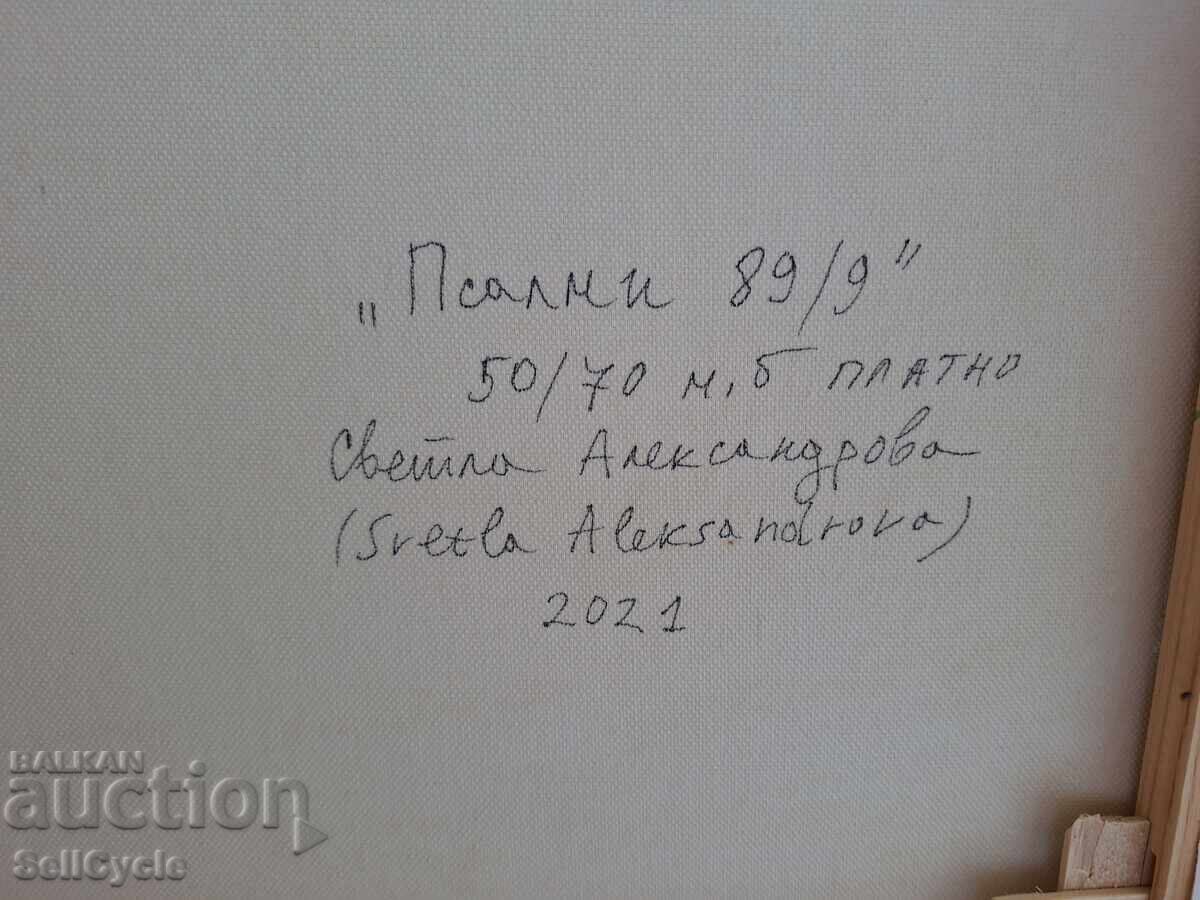 „Псалми 89/9"
50/70 м,б платно
Светла Александрова
(Svetla Aleksandrova)
2021
BALKAN
auction
SellCycle